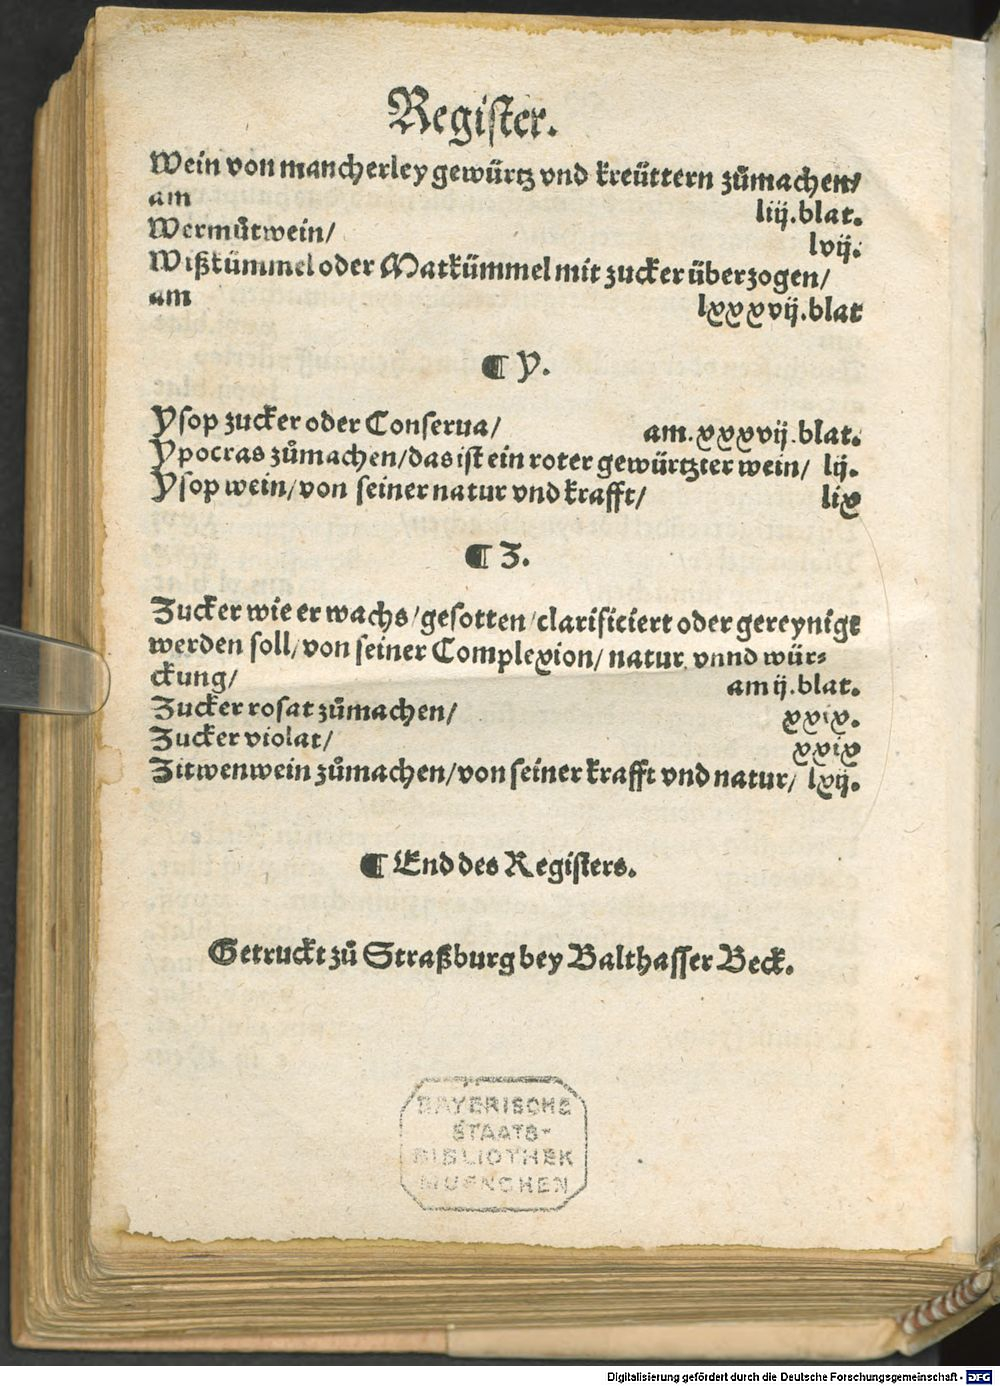 Register.
Wein von mancherley gewürtz vnd kreüttern zůmachen/
am liij.blat.
Wermůtwein/ lvij.
Wißkümmel oder Matkümmel mit zucker überzogen/
am lxxxvij.blat
¶ Y.
Ysop zucker oder Conserua/ am.xxxvij.blat.
Ypocras zůmachen/das ist ein roter gewürtzter wein/ lij.
Ysop wein/von seiner natur vnd krafft/ lix
¶ Z.
Zucker wie er wachs/gesotten/clarificiert oder gereynigt
werden soll/von seiner Complexion/natur, vnnd wür⸗
ckung/ am ij.blat.
Zucker rosat zůmachen/ xxix.
Zucker violat/ xxix
Zitwenwein zůmachen/von seiner krafft vnd natur/ lxij.
¶ End des Registers.
Getruckt zů Straßburg bey Balthasser Beck.
BAYERISCHE
STAATS-
BIBLIOTHEK
MUENCHEN
Digitalisierung gefördert durch die Deutsche Forschungsgemeinschaft - DFG